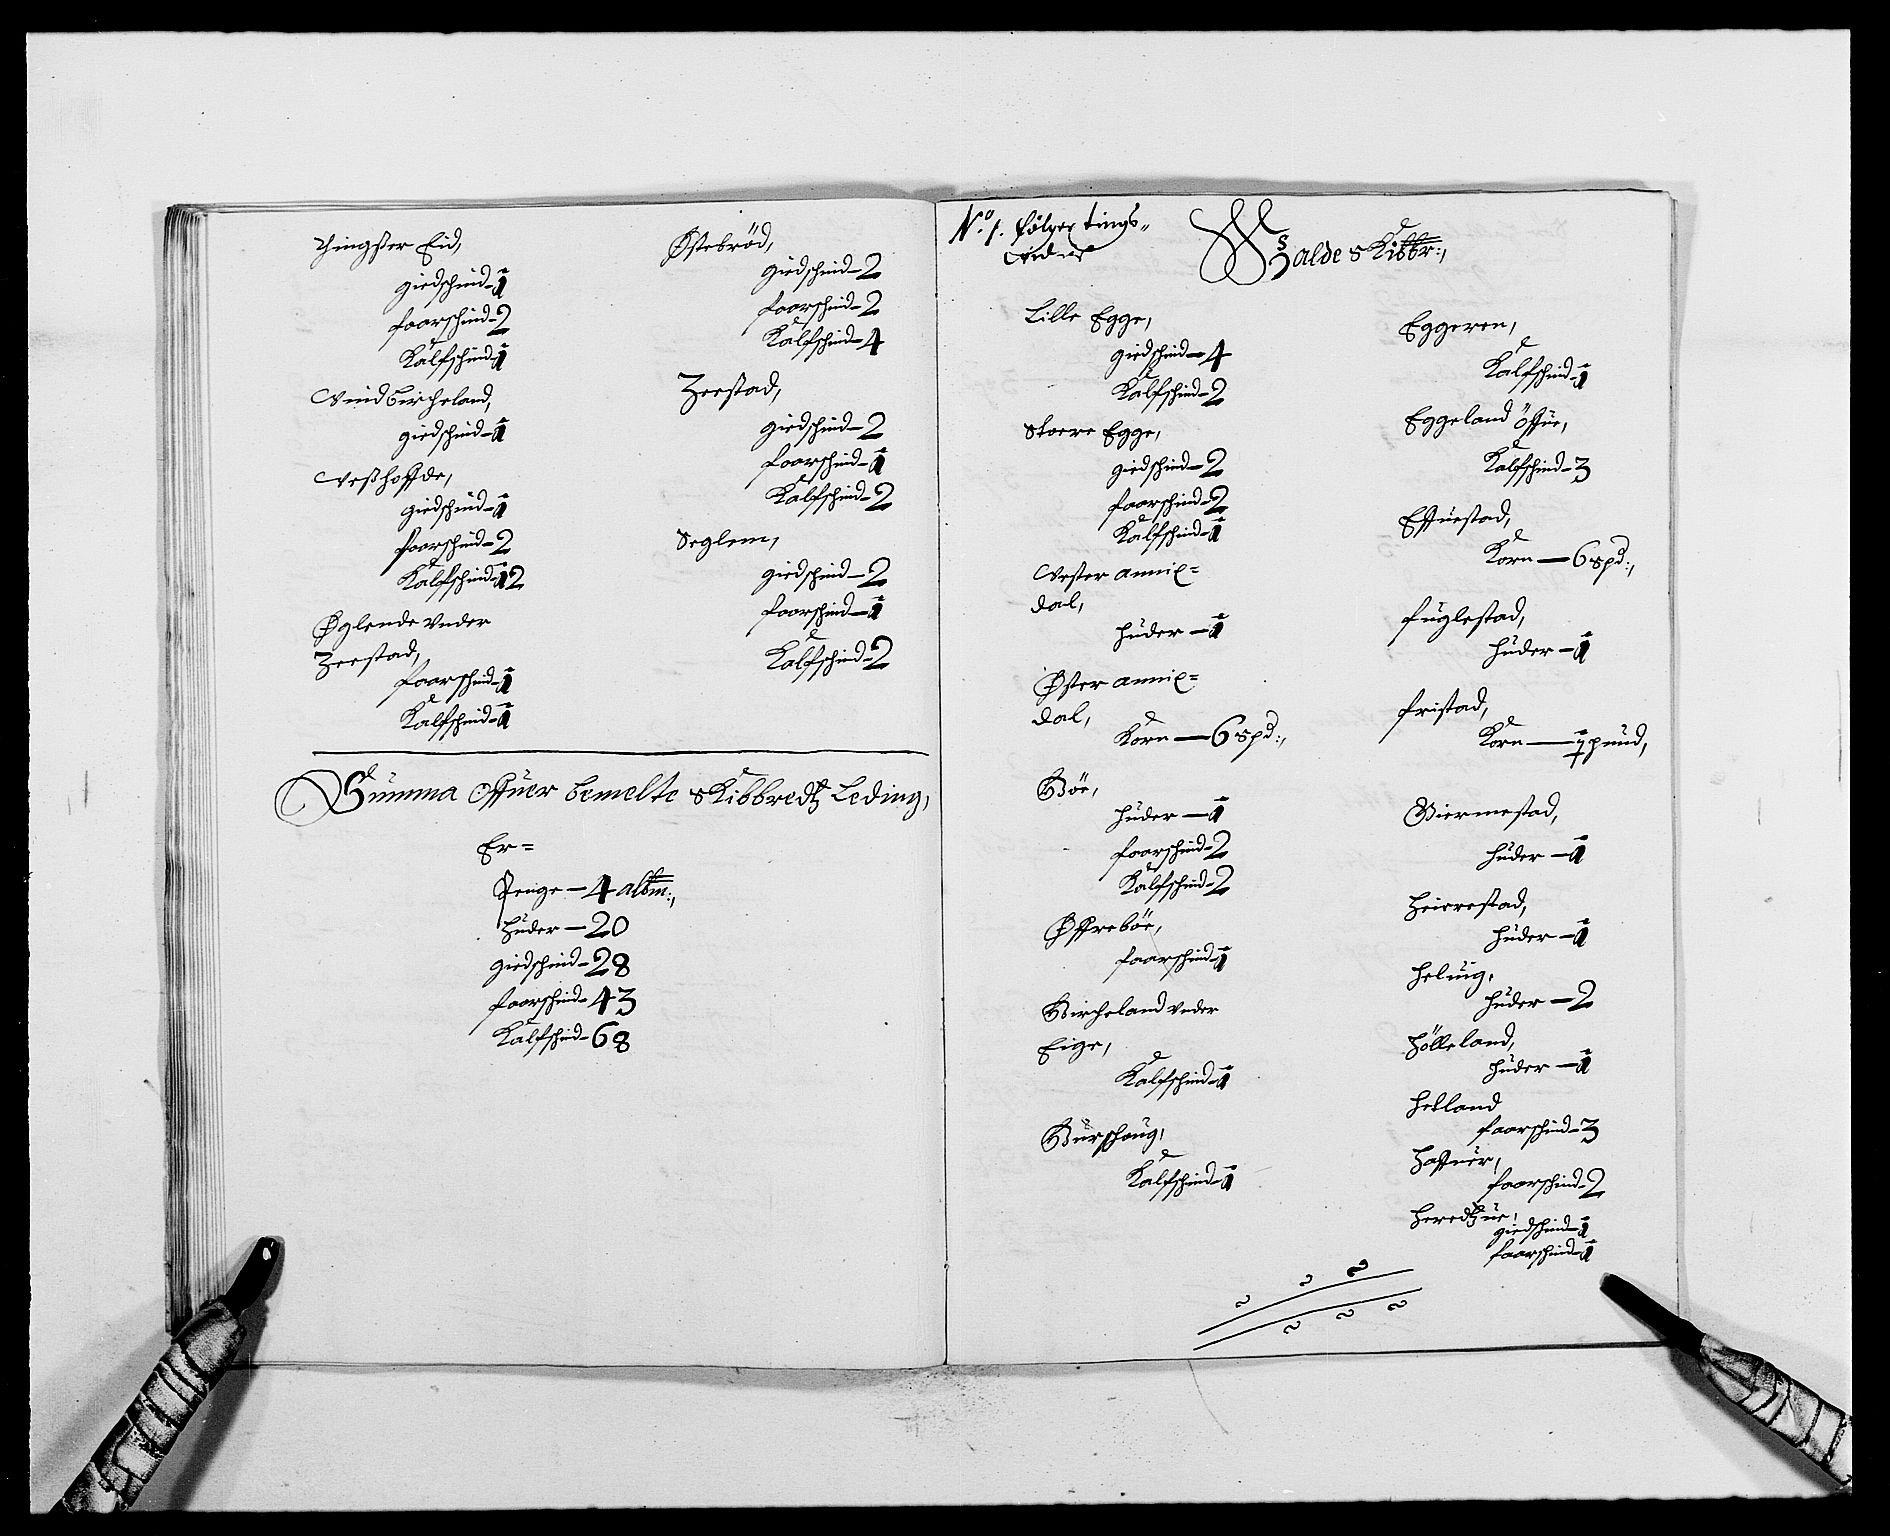 Thingster Eid,
giedschind - 1
faarschind - 2
Kalfschind - 1
Vindbircheland,
giedschind - 1
Vesshoffde,
giedschind - 1
faarschind - 2
Kalfschind - 12
Øglende vnder
Zeestad,
faarschind - 1
Kalfschind - 1
Østebrød,
giedschind - 2
faarschind - 2
Kalfschind - 4
Zeestad,
giedschind - 2
faarschind - 1
Kalfschind - 2
Seglem,
giedschind - 2
faarschind - 1
Kalfschind - 2
Summa offuer bemelte Skibbredtz Leding,
Er =
Penge - 4 albm:,
Huder - 20
giedschind - 28
faarschind - 43
Kalfschind - 68
No 1. følger tings-
vidnet
Skibbr:,
Lille Egge,
giedschind - 4
Kalfschind - 2
Stoere Egge,
giedschind - 2
faarschind - 2
Kalfschind - 1
Vester annix=
dal,
huder - 1
Øster annix=
dal,
Korn - 6 spd:,
Bøe,
huder - 1
faarschind - 2
Kalfschind - 2
Øffrebøe,
faarschind - 1
Bircheland vnder
Eige,
Kalfschind - 1
Kalfschind - 1
Eggeren,
Kalfschind - 1
Eggeland øffue,
Kalfschind - 3
Effuestad,
Korn - 6 spd:,
fuglestad,
huder - 1
fristad,
Korn - 1 pund,
huder - 1
Heirestad,
huder - 1
Heluig,
huder - 2
Hølleland,
huder - 1
Helland
faarschind - 3
Haffuer,
faarschind - 2
giedschind - 1
faarschind - 1